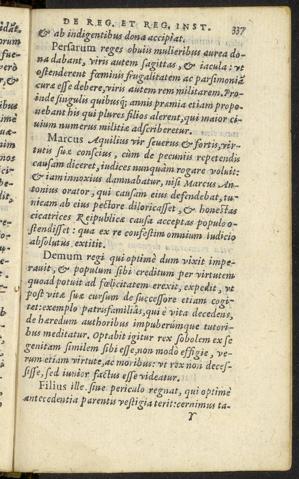 DE REG. ET REG. INST. 337
& ab indigentibus dona accipiat.
Persarum reges obuiis mulieribus aurea do-
na dabant, viris autem sagittas, & iacula: vt
ostenderent fœminis frugalitatem ac parsimoniã
curæ esse debere, viris autem rem militarem. Pro-
inde singulis quibusq; annis præmia etiam propo-
nebant his qui plures filios alerent, qui maior ci-
uium numerus militiæ adscriberetur.
Marcus Aquilius vir seuerus & fortis, vir-
tutis suæ conscius, cùm de pecuniis repetendis
causam diceret, iudices nunquàm rogare voluit:
& iam innoxius damnabatur, nisi Marcus An-
tonius orator, qui causam eius defendebat, tu-
nicam ab eius pectore diloricasset, & honestas
cicatrices Reipublicæ causa acceptas populo o-
stendisset: qua ex re confestim omnium iudicio
absolutus extitit.
Demum regi qui optimè dum vixit impe-
rauit, & populum sibi creditum per virtutem
quoad potuit ad fœlicitatem erexit, expedit, vt
post vitæ suæ cursum de successore etiam cogi-
tet: exemplo patrisfamiliâs, qui è vita decedens,
de hæredum authoribus impuberúmque tutori-
bus meditatur. Optabit igitur rex sobolem ex se
genitam similem sibi esse, non modò effigie, ve-
rum etiam virtute, ac moribus: vt rex non deces-
sisse, sed iunior factus esse videatur.
Filius ille sine periculo regnat, qui optimè
antecedentia parentis vestigia terit: cernimus ta-
Y